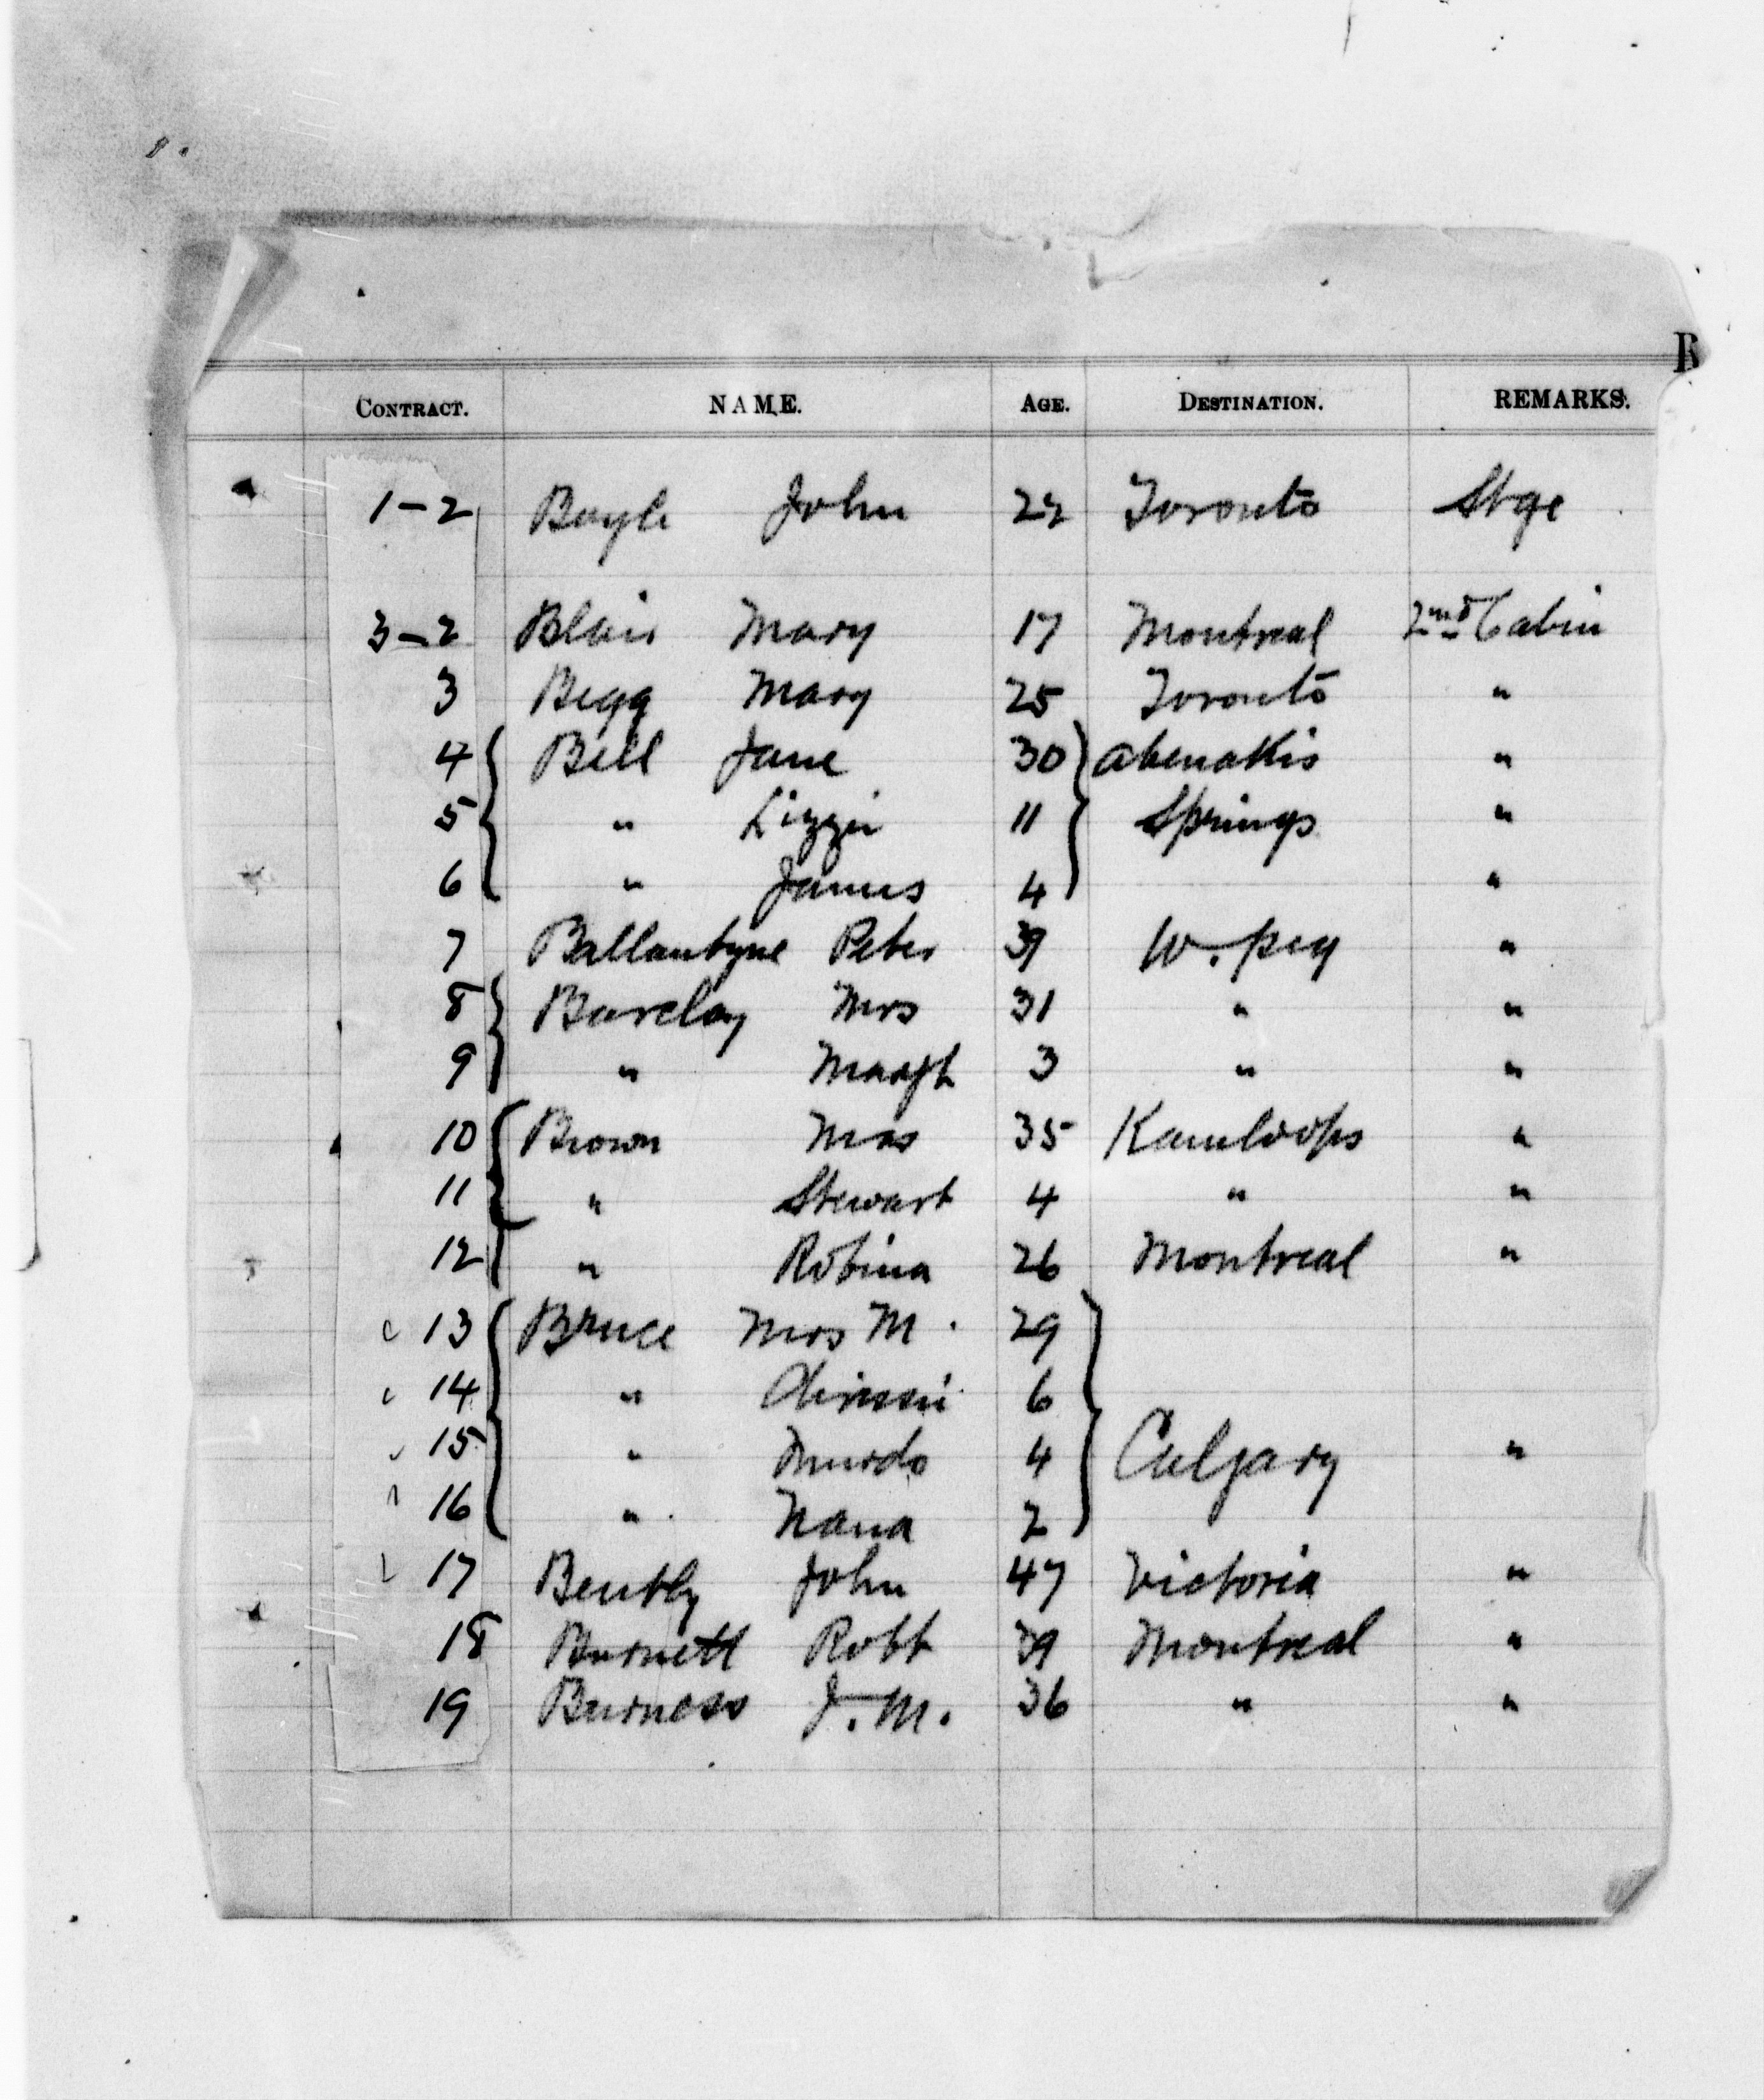 B
CONTRACT. NAME. AGE. DESTINATION. REMARKS.
1-2 Boyle John 22 Toronto Stge
3-2 Blair Mary 17 Montreal 2nd Cabin
3 Begg Mary 25 Toronto "
4 Bell Jane 30 Abenakis "
5 " Lizzie 11 Springs "
6 " James 4 "
7 Ballantyne Peter 39 W.peg "
8 Barclay Mrs 31 " "
9 " Margt 3 " "
10 Brown Mrs 35 Kamloops "
11 " Stewart 4 " "
12 " Robina 26 Montreal "
13 Bruce Mrs M. 29
14 " 6
15 " Murdo 4 Calgary "
16 " Nana 2
17 Bently John 47 Victoria "
18 Burnett Robt 39 Montreal "
19 Burness J.M. 36 " "